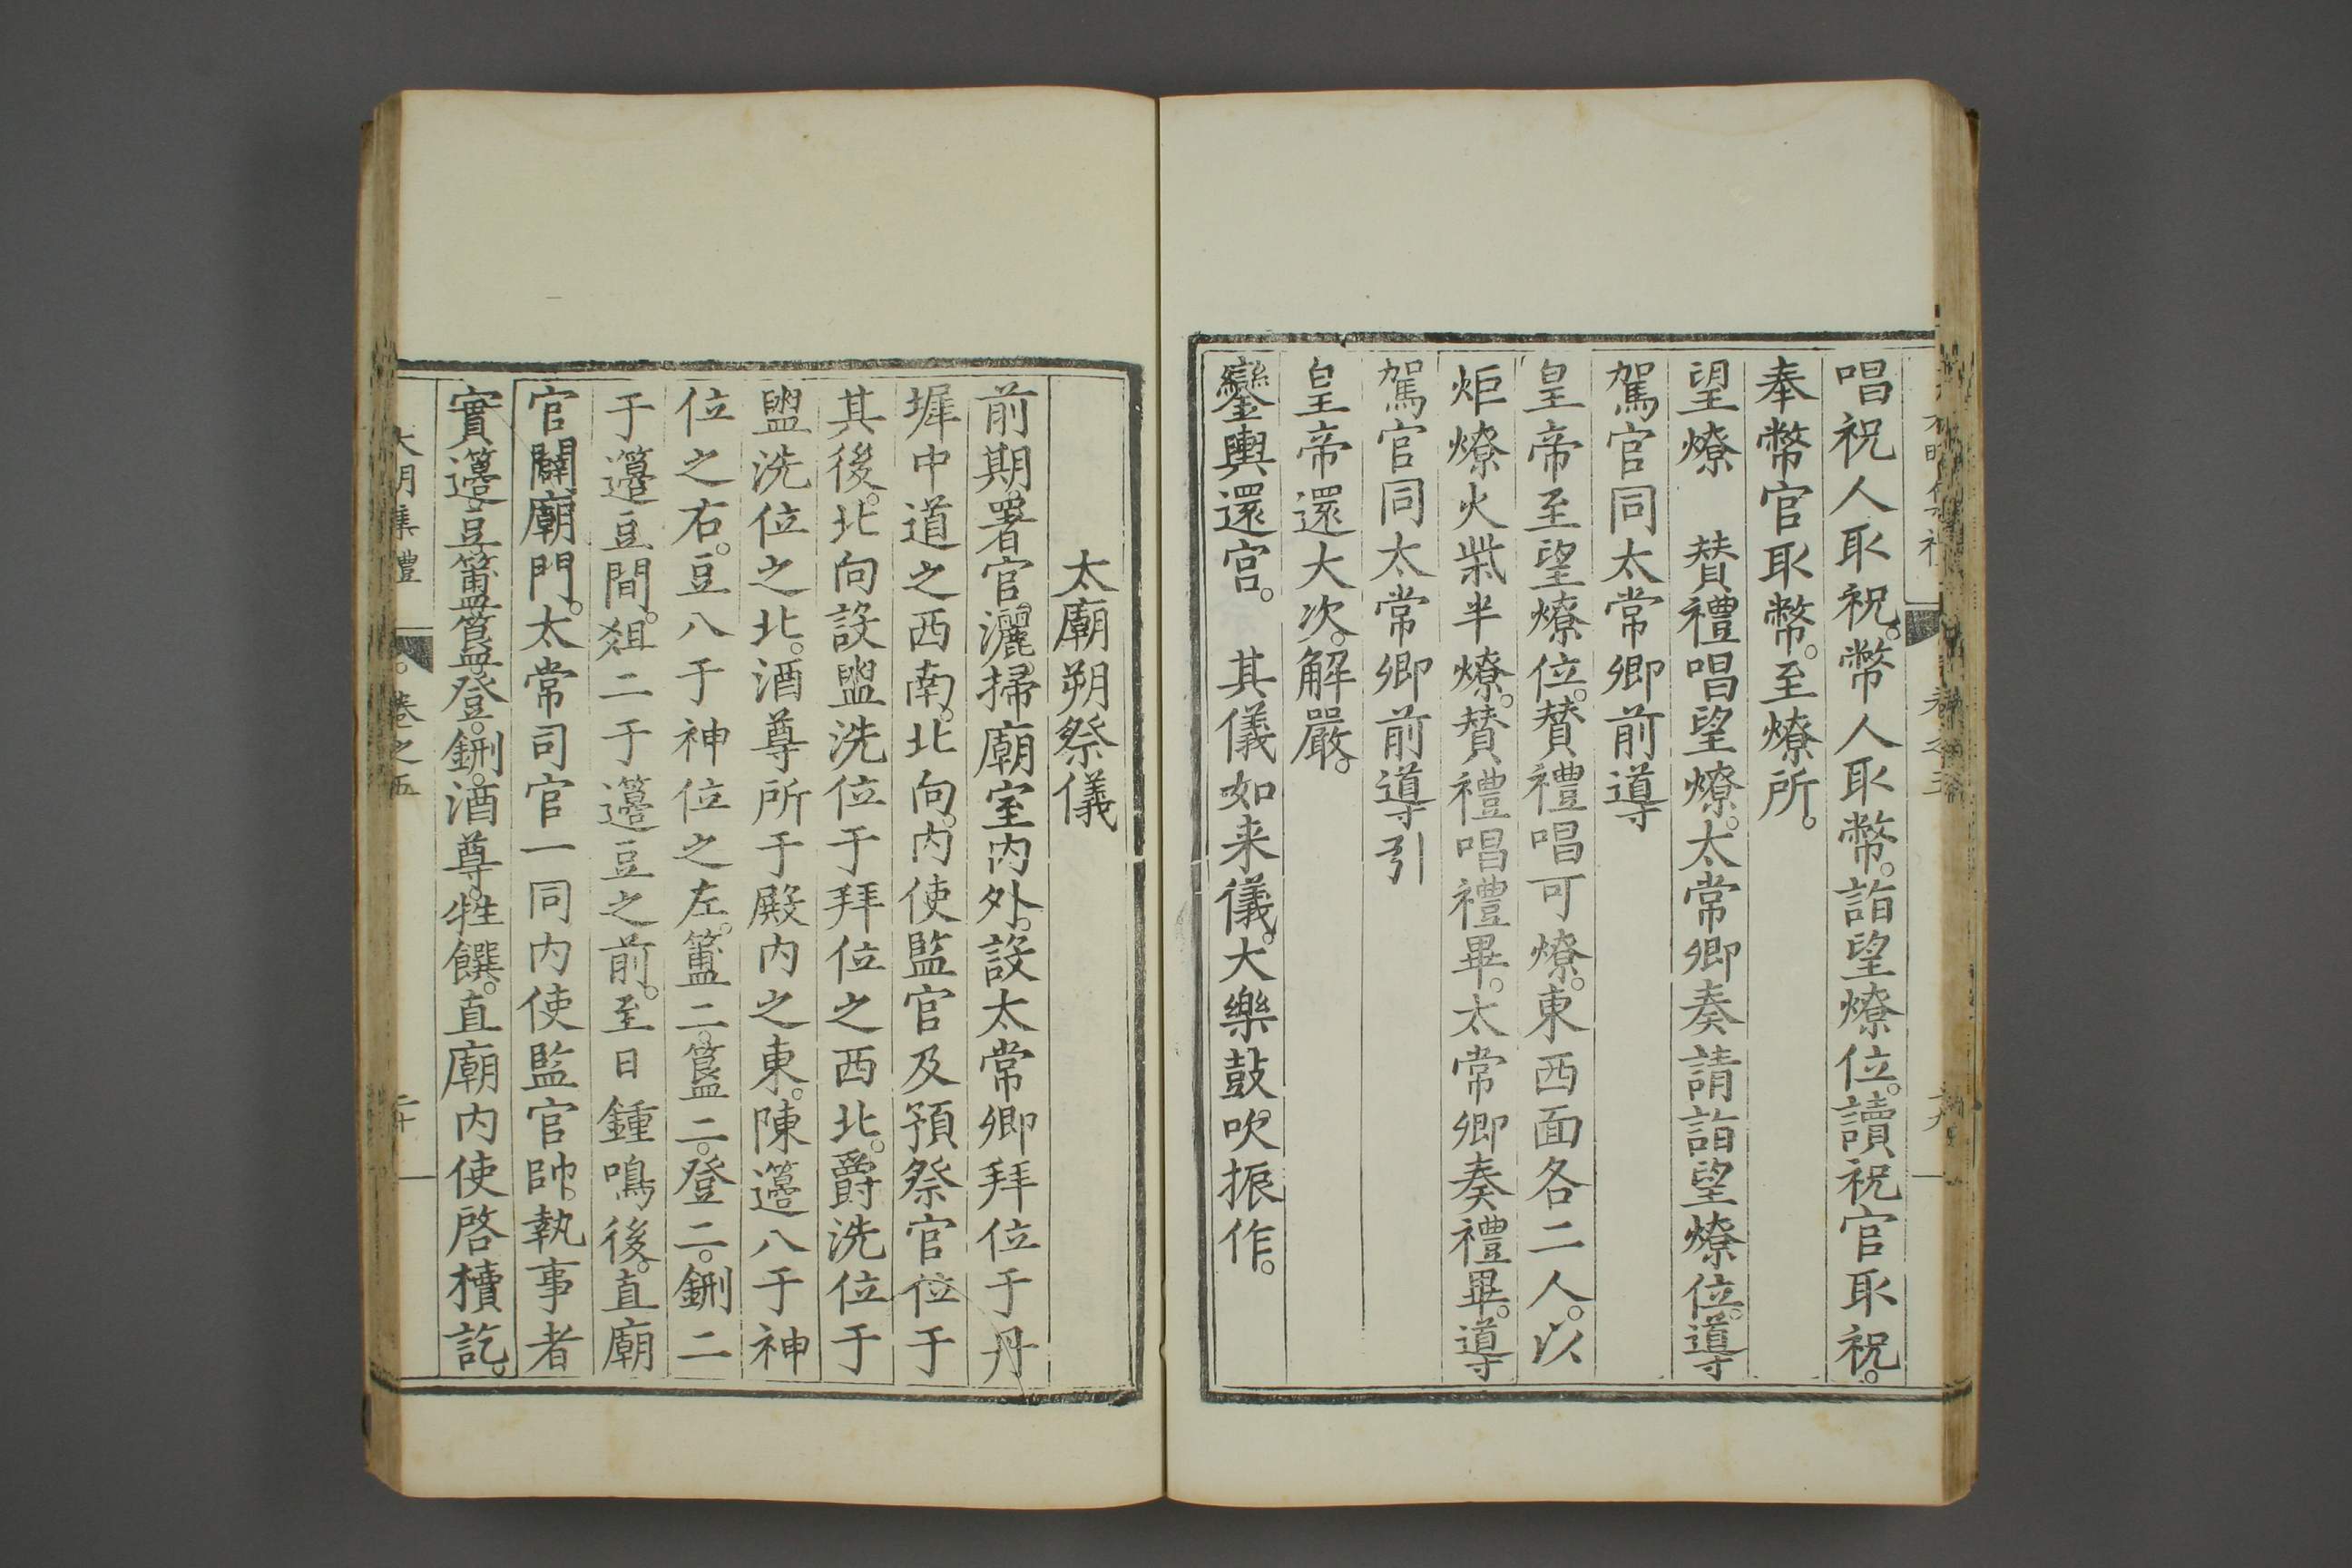 唱祝人取祝。幣人取幣。詣望燎位。讀祝官取祝。
奉幣官取幣。至燎所。
望燎　贊禮唱望燎。太常卿奏請詣望燎位。導
駕官同太常卿前導
皇帝至望燎位。贊禮唱可燎。東西面各二人。以
炬燎火柴半燎。贊禮唱禮畢。太常卿奏禮畢。導
駕官同太常卿前導引
皇帝還大次。解嚴。
鑾輿還宮。　其儀如来儀。大樂鼓吹振作。
太廟朔祭儀
前期。署官灑掃廟室内外。設太常卿拜位于丹
墀中道之西南。北向。内使監官及預祭官位于
其後。北向設盥洗位于拜位之西北。爵洗位于
盥洗位之北。酒尊所于殿内之東。陳籩八于神
位之右。豆八于神位之左。簠二。簋二。登二。鉶二
于籩豆間。俎二于籩豆之前。至日鍾鳴後。直廟
官闢廟門。太常司官一同内使監官帥。執事者
實籩。豆。簠。簋。登。鉶。酒尊。牲饌。直廟内使啓櫝訖。
大明集禮
卷之五
二十